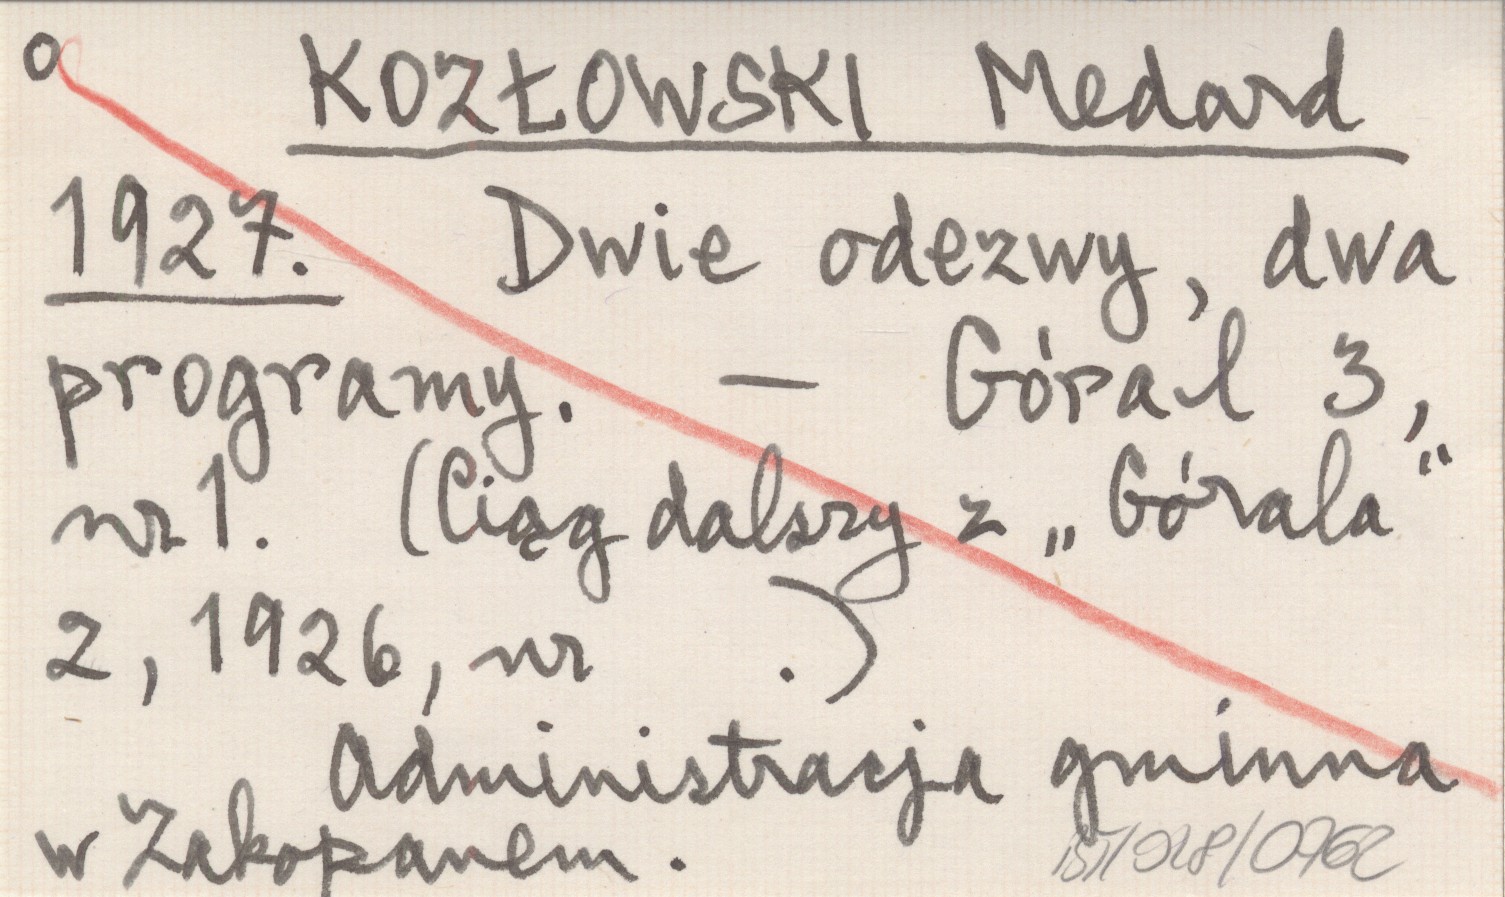 o KOZŁOWSKI Medard
1927. Dwie odezwy, dwa
programy. — Góral 3,
nr 1. (Ciąg dalszy z „Górala“
2, 1926, nr .)
Administracja gminna
w Zakopanem.